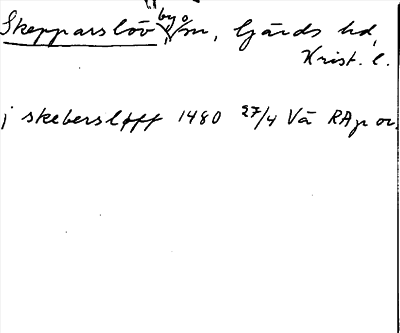 Skepparslöv, by o sn, Gärds hd,
Krist. l.
j skebersløff 1480 27/4 Vä RAp or.